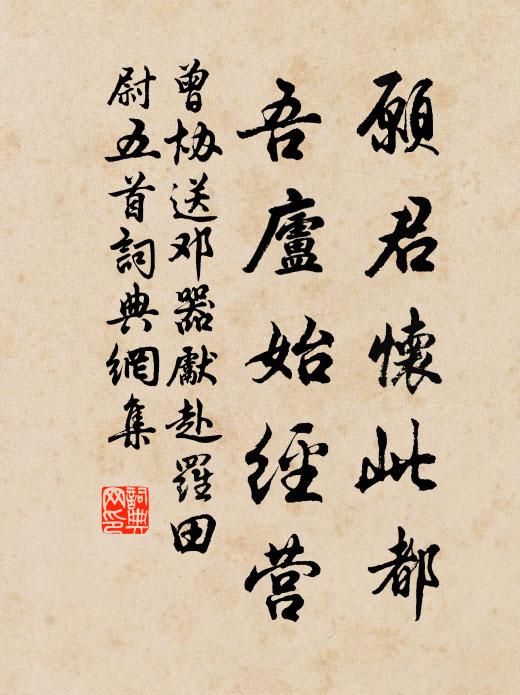 願君懷此都
吾廬始經营
曾协送邓器獻赴羅田
尉五首詞典網集
詞典网印